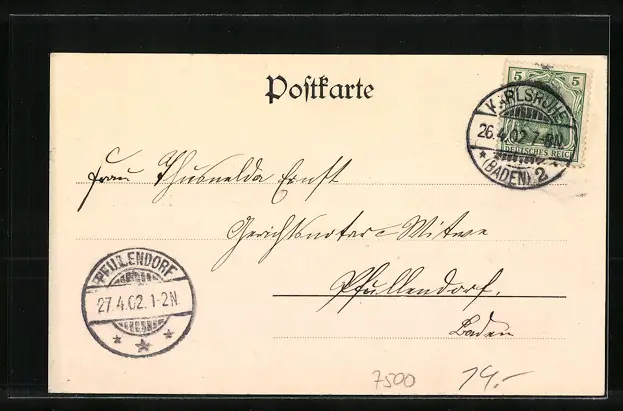 Postkarte
5 5
DEUTSCHES REICH
KARLSRUHE
26.4.02.7-8N.
* (BADEN). 2
Frau Thusnelda Ernst
Gerichtsnotar-Witwe
Pfullendorf,
Baden
PFULLENDORF
27.4.02.1-2N
7500
14.-